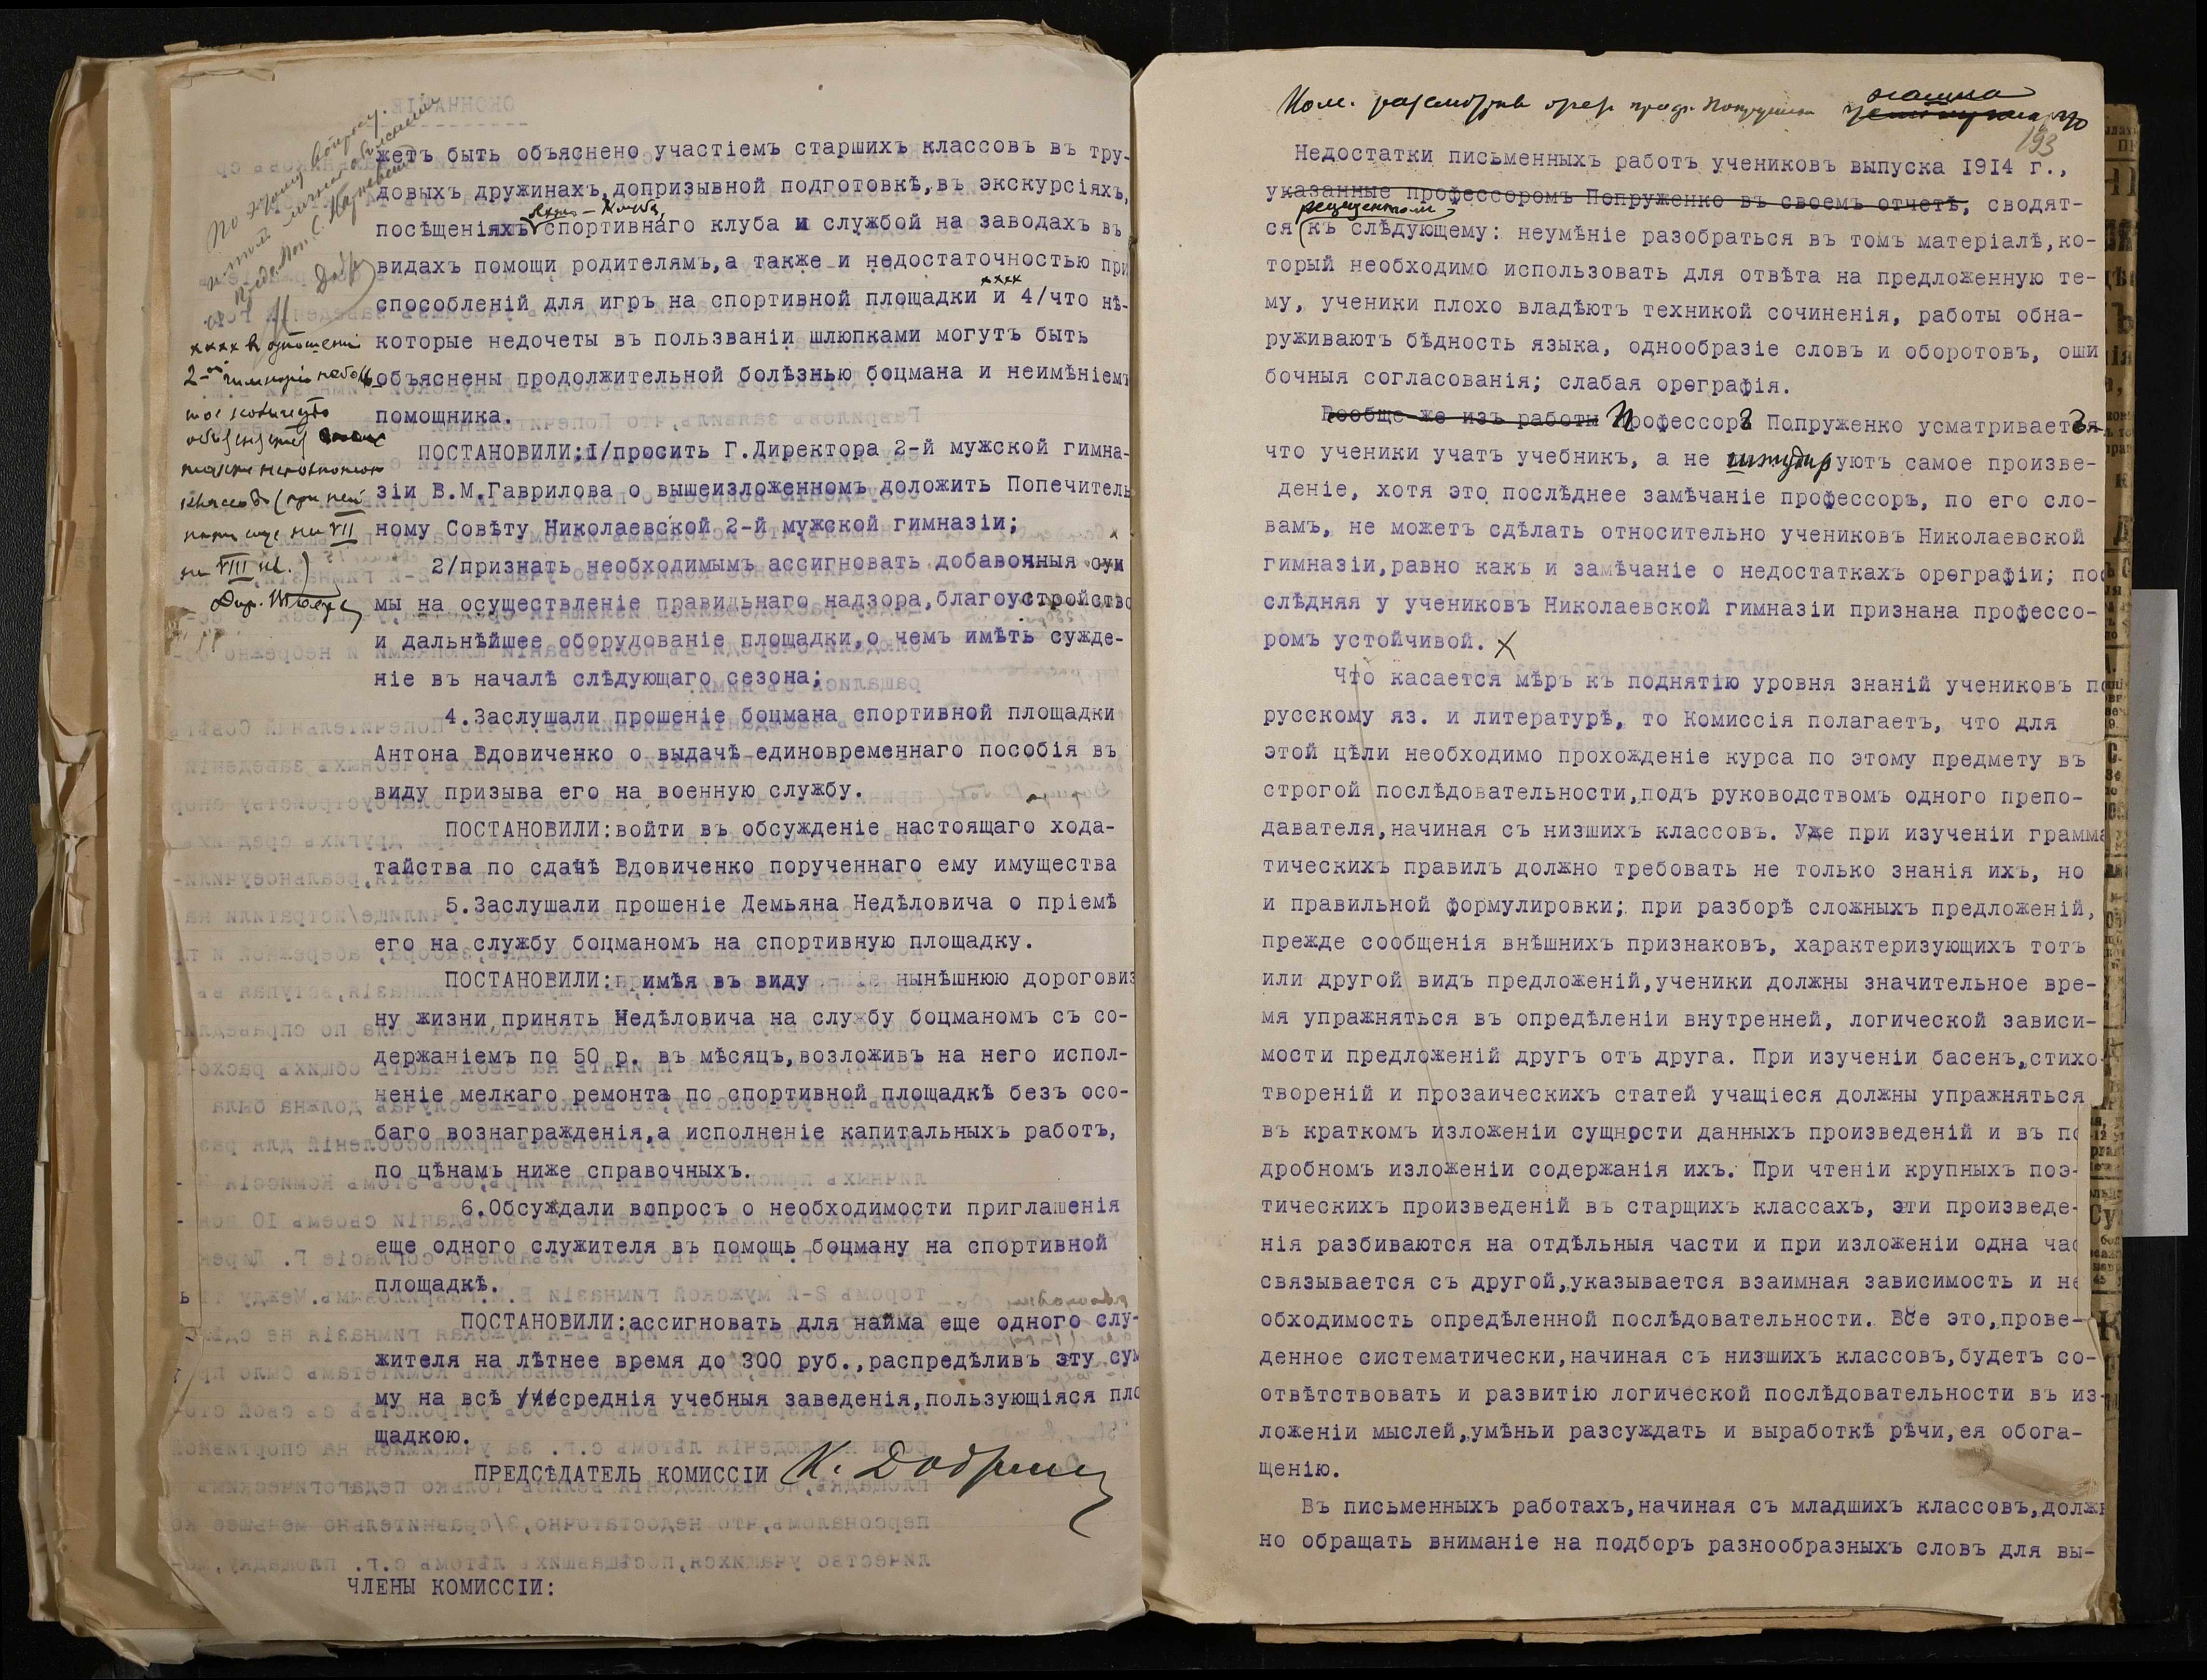 жетъ быть объяснено участіемъ старшихъ классовъ въ тру-
довыхъ дружинахъ,допризывной подготовкѣ,въ экскурсіяхъ,
посѣщеніяхъ спортивнаго клуба и службой на заводахъ въ
видахъ помощи родителямъ,а также и недостаточностью при
способленій для игръ на спортивной площадки и 4/что нѣ-
которые недочеты въ пользваніи шлюпками могутъ быть
объяснены продолжительной болѣзнью боцмана и неимѣніемъ
помощника.
ПОСТАНОВИЛИ:I/просить Г.Директора 2-й мужской гимна-
зіи В.М.Гаврилова о вышеизложенномъ доложить Попечитель
ному Совѣту Николаевской 2-й мужской гимназіи;
2/признать необходимымъ ассигновать добавочныя сум
мы на осуществленіе правильнаго надзора,благоустройство
и дальнѣйшее оборудованіе площадки,о чемъ имѣть сужде-
ніе въ началѣ слѣдующаго сезона;
4.Заслушали прошеніе боцмана спортивной площадки
Антона Вдовиченко о выдачѣ единовременнаго пособія въ
виду призыва его на военную службу.
ПОСТАНОВИЛИ:войти въ обсужденіе настоящаго хода-
тайства по сдачѣ Вдовиченко порученнаго ему имущества
5.Заслушали прошеніе Демьяна Недѣловича о пріемѣ
его на службу боцманомъ на спортивную площадку.
ПОСТАНОВИЛИ: имѣя въ виду нынѣшнюю дороговиз
ну жизни принять Недѣловича на службу боцманомъ съ со-
держаніемъ по 50 р. въ мѣсяцъ,возложивъ на него испол-
неніе мелкаго ремонта по спортивной площадкѣ безъ осо-
баго вознагражденія,а исполненіе капитальныхъ работъ,
по цѣнамъ ниже справочныхъ.
6.Обсуждали вопросъ о необходимости приглашенія
еще одного служителя въ помощь боцману на спортивной
площадкѣ.
ПОСТАНОВИЛИ:ассигновать для найма еще одного слу-
жителя на лѣтнее время до 300 руб.,распредѣливъ эту сум
му на всѣ среднія учебныя заведенія,пользующіяся пло
щадкою.
ПРЕДСѢДАТЕЛЬ КОМИССІИ
ЧЛЕНЫ КОМИССІИ:
193
Недостатки письменныхъ работъ учениковъ выпуска I9I4 г.,
указанные профессоромъ Попруженко въ своемъ отчетѣ, сводят-
рецензентомъ
ся къ слѣдующему: неумѣніе разобраться въ томъ матеріалѣ,ко-
торый необходимо использовать для отвѣта на предложенную те-
му, ученики плохо владѣютъ техникой сочиненія, работы обна-
руживаютъ бѣдность языка, однообразіе словъ и оборотовъ, оши
бочныя согласованія; слабая орѳграфія.
Вообще же изъ работы Профессоръ Попруженко усматриваетъ
что ученики учатъ учебникъ, а не штудируютъ самое произве-
деніе, хотя это послѣднее замѣчаніе профессоръ, по его сло-
вамъ, не можетъ сдѣлать относительно учениковъ Николаевской
гимназіи,равно какъ и замѣчаніе о недостаткахъ орѳграфіи; пос
слѣдняя у учениковъ Николаевской гимназіи признана профессо-
ромъ устойчивой. X
Что касается мѣръ къ поднятію уровня знаній учениковъ по
русскому яз. и литературѣ, то Комиссія полагаетъ, что для
этой цѣли необходимо прохожденіе курса по этому предмету въ
строгой послѣдовательности,подъ руководствомъ одного препо-
давателя,начиная съ низшихъ классовъ. Уже при изученіи грамма
тическихъ правилъ должно требовать не только знанія ихъ, но
и правильной формулировки; при разборѣ сложныхъ предложеній,
прежде сообщенія внѣшнихъ признаковъ, характеризующихъ тотъ
или другой видъ предложеній,ученики должны значительное вре-
мя упражняться въ опредѣленіи внутренней, логической зависи-
мости предложеній другъ отъ друга. При изученіи басенъ,стихо-
твореній и прозаическихъ статей учащіеся должны упражняться
въ краткомъ изложеніи сущности данныхъ произведеній и въ по
дробномъ изложеніи содержанія ихъ. При чтеніи крупныхъ поэ-
тическихъ произведеній въ старщихъ классахъ, эти произведе-
нія разбиваются на отдѣльныя части и при изложеніи одна час
связывается съ другой,указывается взаимная зависимость и не
обходимость опредѣленной послѣдовательности. Все это,прове-
денное систематически,начиная съ низшихъ классовъ,будетъ со-
отвѣтствовать и развитію логической послѣдовательности въ из-
ложеніи мыслей,умѣньи разсуждать и выработкѣ рѣчи,ея обога-
щенію.
Въ письменныхъ работахъ,начиная съ младшихъ классовъ,долж
но обращать вниманіе на подборъ разнообразныхъ словъ для вы-